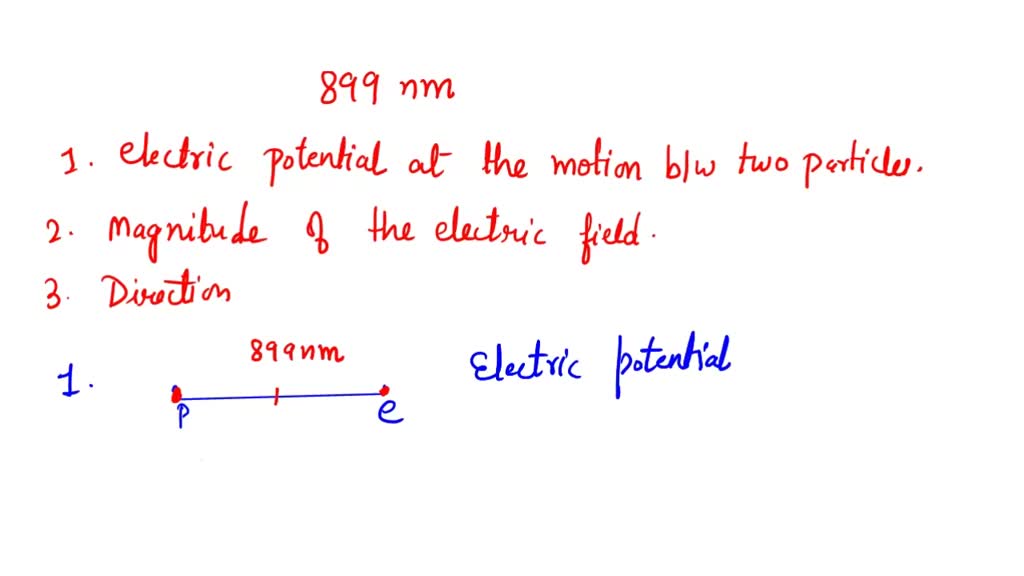 899 nm
1. electric potential at the motion b/w two particles.
2. Magnitude of the electric field.
3. Direction
899nm
1.
Electric potential
P
e